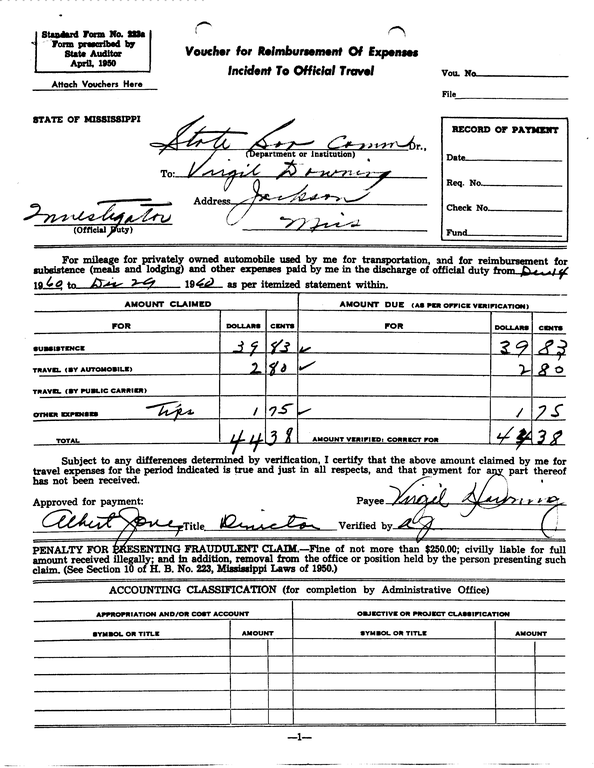 Standard Form No. 223a
Form prescribed by
State Auditor
April, 1950
Attach Vouchers Here
Voucher for Reimbursement Of Expenses
Incident To Official Travel
Vou. No.
File
STATE OF MISSISSIPPI
State Sov Comm Dr.,
(Department or Institution)
To: Virgil Downing
Address Jackson
Miss
Investigator
(Official Duty)
RECORD OF PAYMENT
Date
Req. No.
Check No.
Fund
For mileage for privately owned automobile used by me for transportation, and for reimbursement for
subsistence (meals and lodging) and other expenses paid by me in the discharge of official duty from Dec 14
1960 to Dec 29 1960 as per itemized statement within.
AMOUNT CLAIMED AMOUNT DUE (AS PER OFFICE VERIFICATION)
FOR DOLLARS CENTS FOR DOLLARS CENTS
SUBSISTENCE 39 83 ✓ 39 83
TRAVEL (BY AUTOMOBILE) 2 80 ✓ 2 80
TRAVEL (BY PUBLIC CARRIER)
OTHER EXPENSES Tips 1 75 ✓ 1 75
TOTAL 44 38 AMOUNT VERIFIED; CORRECT FOR 44 38
Subject to any differences determined by verification, I certify that the above amount claimed by me for
travel expenses for the period indicated is true and just in all respects, and that payment for any part thereof
has not been received.
Approved for payment: Payee Virgil Downing
Albert Jones Title Director Verified by aj
PENALTY FOR PRESENTING FRAUDULENT CLAIM.—Fine of not more than $250.00; civilly liable for full
amount received illegally; and in addition, removal from the office or position held by the person presenting such
claim. (See Section 10 of H. B. No. 223, Mississippi Laws of 1950.)
ACCOUNTING CLASSIFICATION (for completion by Administrative Office)
APPROPRIATION AND/OR COST ACCOUNT OBJECTIVE OR PROJECT CLASSIFICATION
SYMBOL OR TITLE AMOUNT SYMBOL OR TITLE AMOUNT
—1—